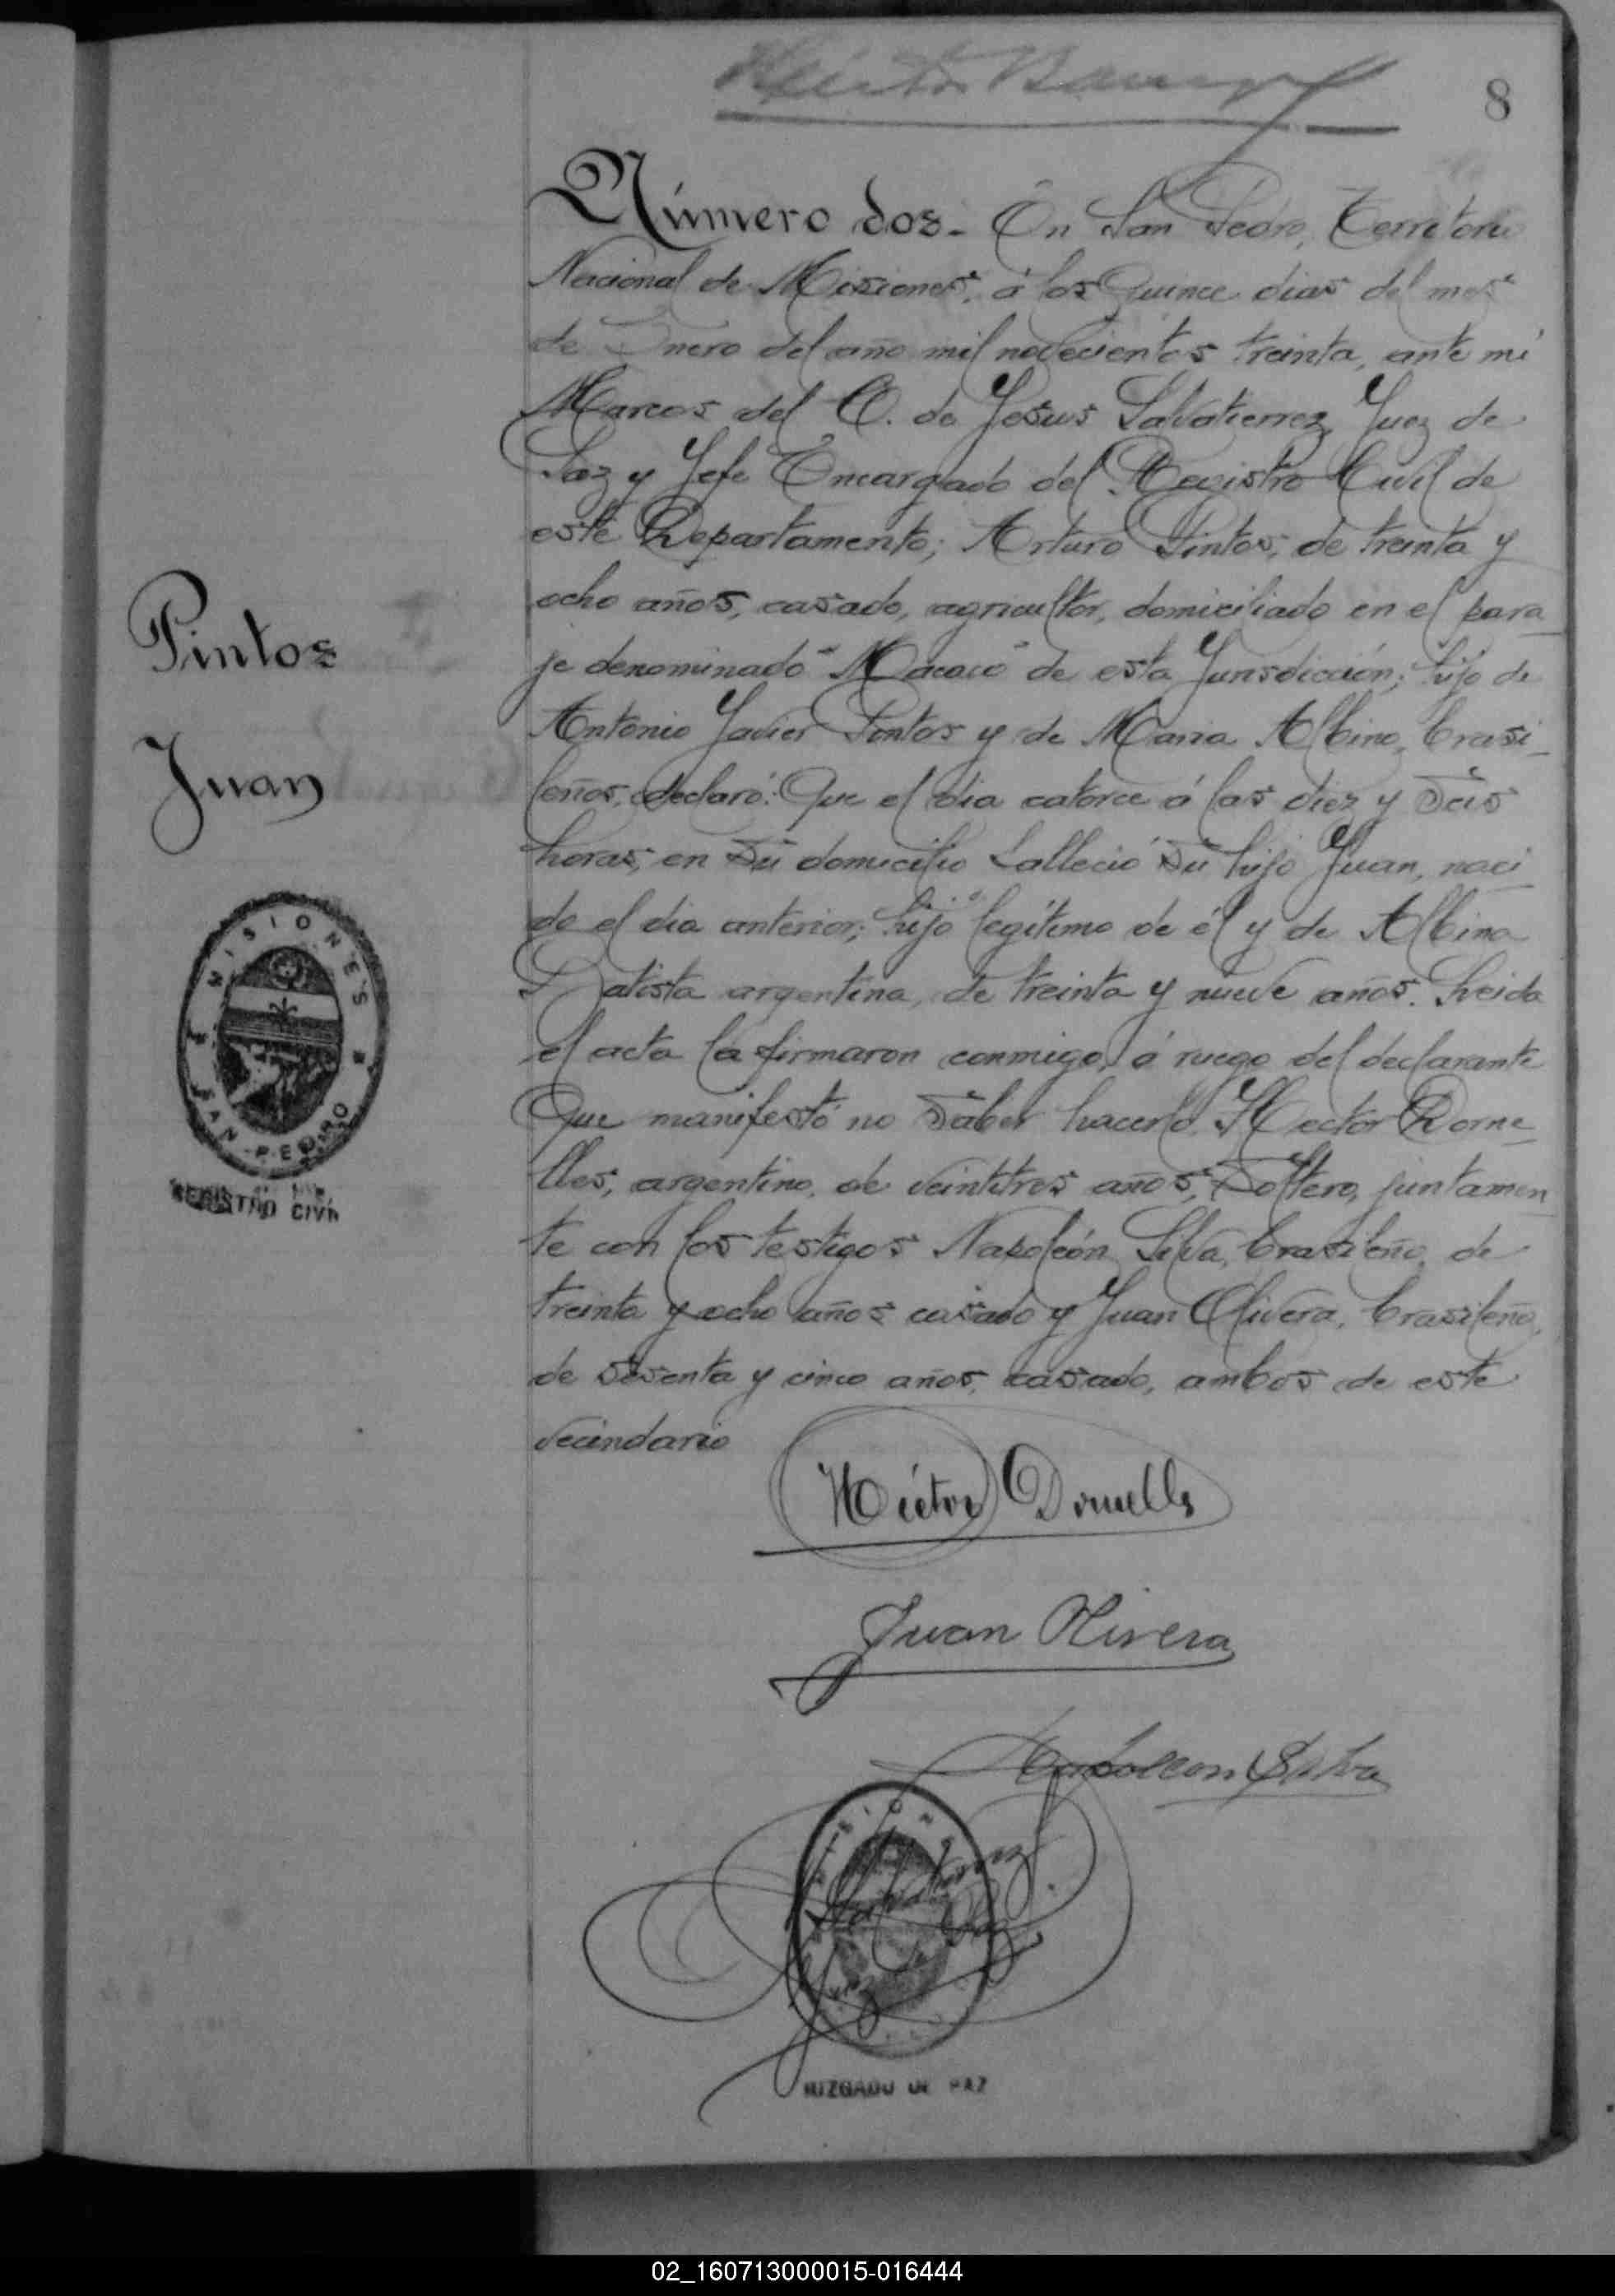 8
Número dos- En San Pedro, Territorio
Nacional de Misiones, á los quince dias del mes
de Enero del año mil novecientos treinta, ante mi
Marcos del C. de Jesus Salvatierrez, Juez de
Paz y Jefe Encargado del Registro Civil de
este Departamento; Arturo Pintos, de treinta y
ocho años, casado, agricultor, domiciliado en el para
je denominado "Macaco" de esta Jurisdicción; hijo de
Antonio Javier Pintos y de Maria Albino, brasi-
leños, declaró: Que el dia catorce á las diez y seis
horas, en su domicilio falleció su hijo Juan, naci
do el dia anterior; hijo legítimo de él y de Albina
Batista argentina, de treinta y nueve años. Leida
el acta la firmaron conmigo, á ruego del declarante
Que manifestó no saber hacerlo Hector Dorne-
lles, argentino, de veintitres años, soltero, juntamen
te con los testigos Napoleón Silva, brasileño, de
treinta y ocho años casado y Juan Olivera, brasileño,
de sesenta y cinco años, casado, ambos de este
vecindario
Pintos
Juan
MISIONES
SAN PEDRO
REGISTRO CIVIL
Héctor Dornells
Juan Olivera
Napoleon Silva
Juez de Paz
JUZGADO DE PAZ
02_160713000015-016444